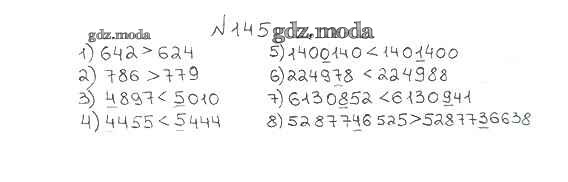 №145
gdz.moda gdz.moda
1) 642 > 624
2) 786 > 779
3) 4897 < 5010
4) 4455 < 5444
5) 1400140 < 1401400
6) 224978 < 224988
7) 6130852 < 6130941
8) 5287746525 > 5287736638